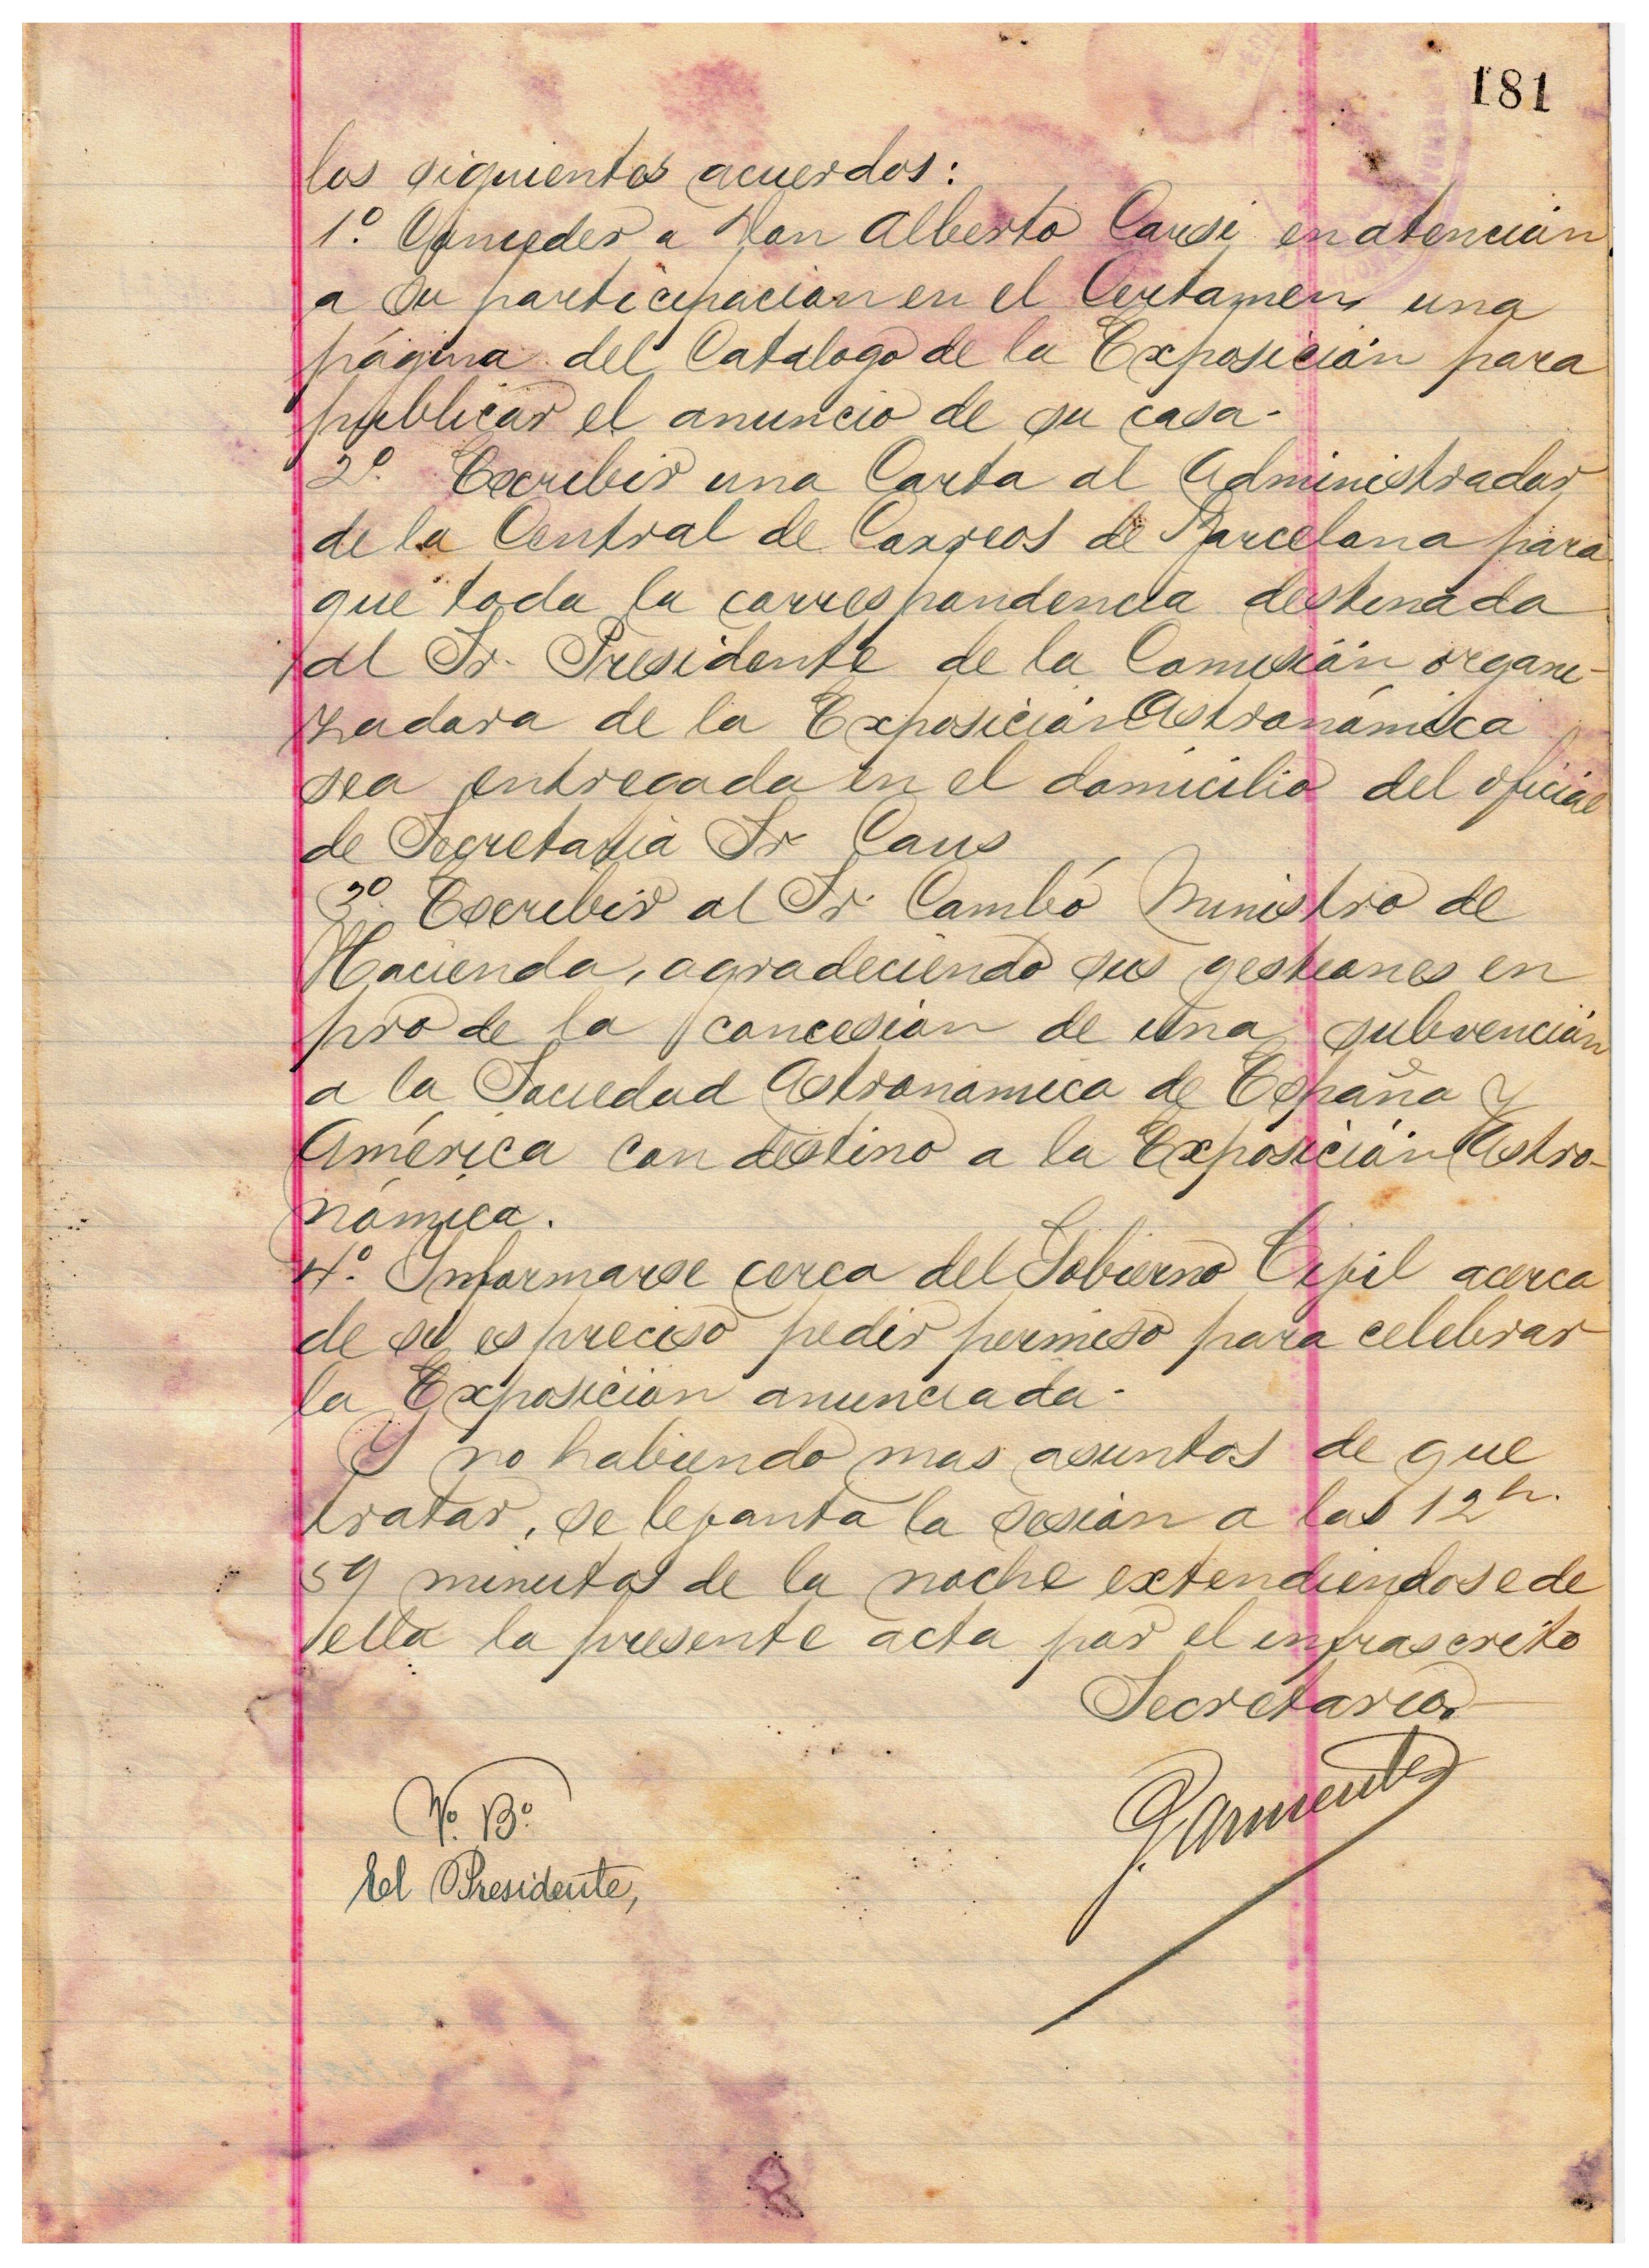 181
los siguientes acuerdos:
1º. Conceder a Don Alberto Carsi en atención
a su participación en el Certamen una
página del Catalogo de la Exposición para
publicar el anuncio de su casa.
2º. Escribir una Carta al Administrador
de la Central de Correos de Barcelona para
que toda la correspondencia destinada
al Sr. Presidente de la Comisión organi-
zadora de la Exposición Astronómica
sea entregada en el domicilio del oficial
de Secretaria Sr Caus
3º. Escribir al Sr. Cambó Ministro de
Hacienda, agradeciendo sus gestiones en
pro de la concesion de una subvención
a la Sociedad Astronomica de España y
América con destino a la Exposición Astro-
nómica.
4º. Informarse cerca del Gobierno Civil acerca
de si es preciso pedir permiso para celebrar
la Exposicion anunciada.
Y no habiendo mas asuntos de que
tratar, se levanta la sesión a las 12 h.
59 minutos de la noche extendiendose de
ella la presente acta por el infrascrito
Secretario.
Vº. Bº.
El Presidente,